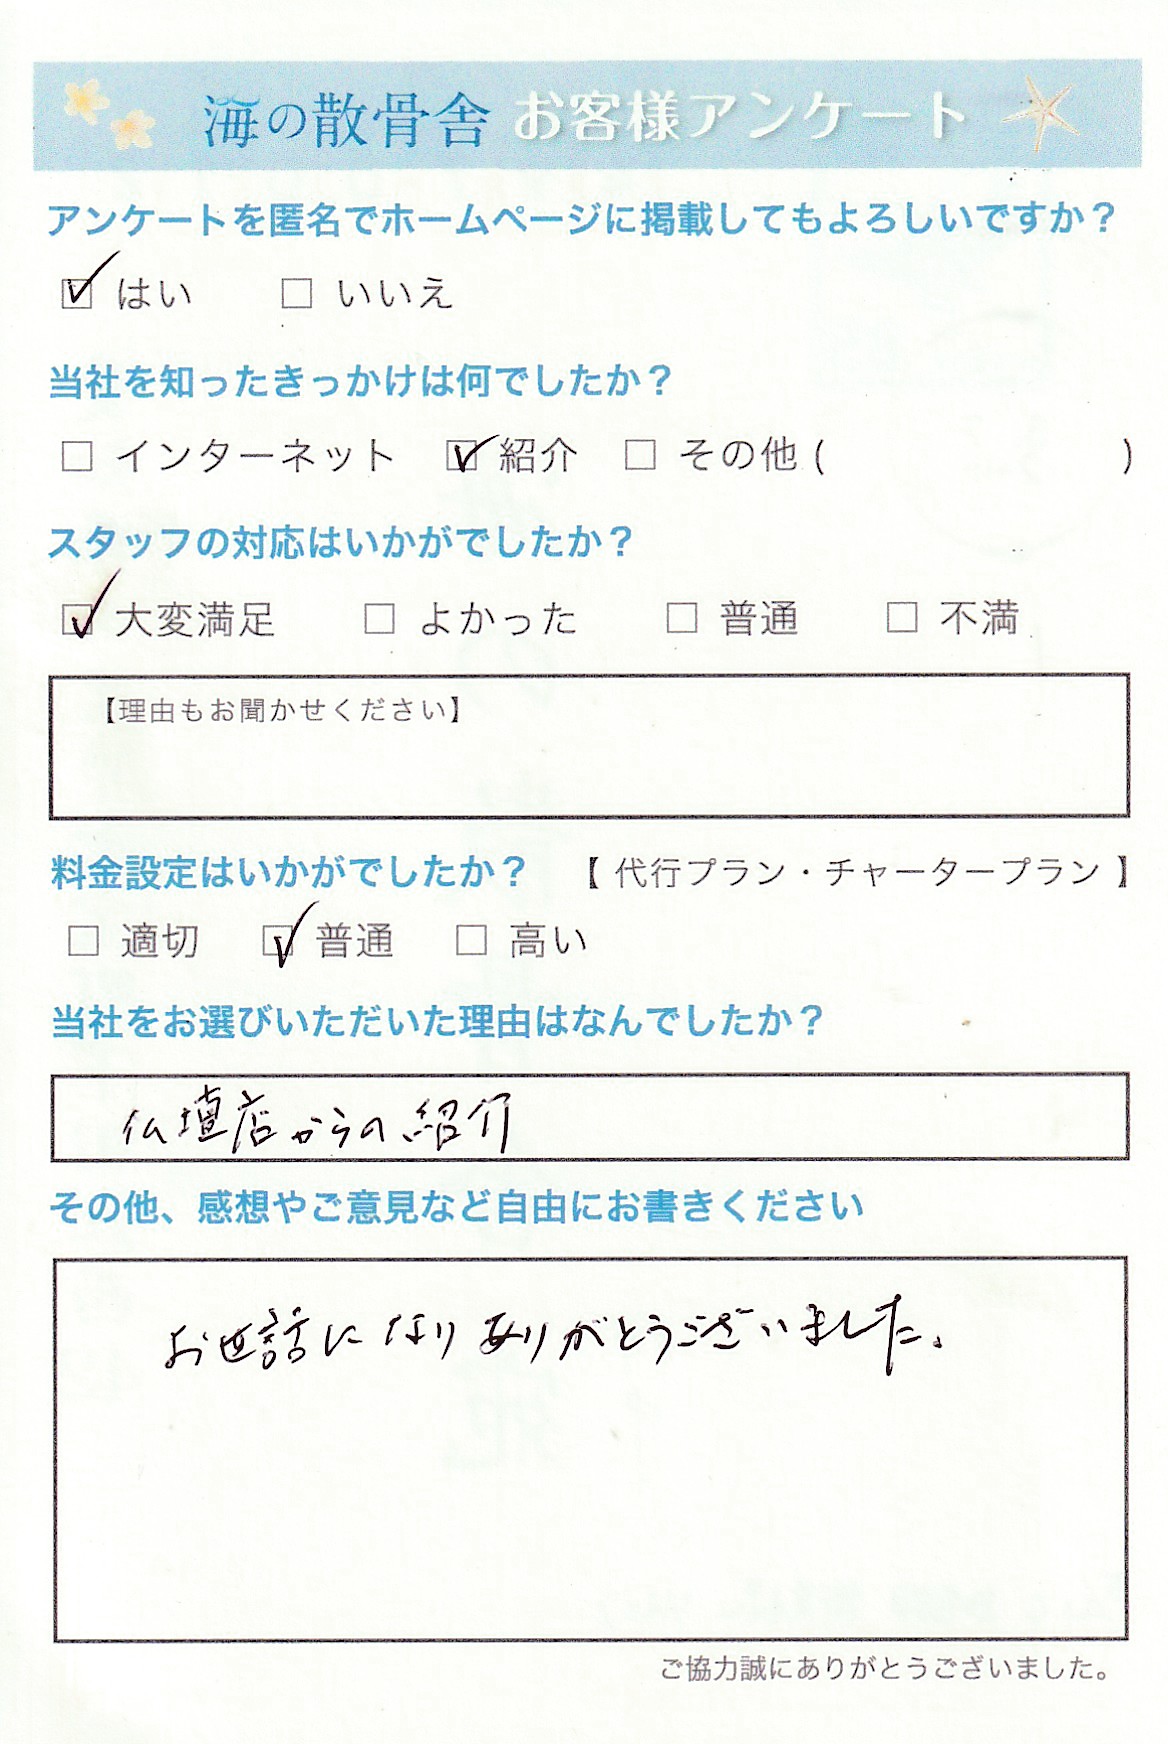 海の散骨舎 お客様アンケート
アンケートを匿名でホームページに掲載してもよろしいですか？
☑ はい □ いいえ
当社を知ったきっかけは何でしたか？
□ インターネット ☑ 紹介 □ その他 ( )
スタッフの対応はいかがでしたか？
☑ 大変満足 □ よかった □ 普通 □ 不満
【理由もお聞かせください】
料金設定はいかがでしたか？ 【 代行プラン・チャータープラン 】
□ 適切 ☑ 普通 □ 高い
当社をお選びいただいた理由はなんでしたか？
仏壇店からの紹介
その他、感想やご意見など自由にお書きください
お世話になりありがとうございました。
ご協力誠にありがとうございました。